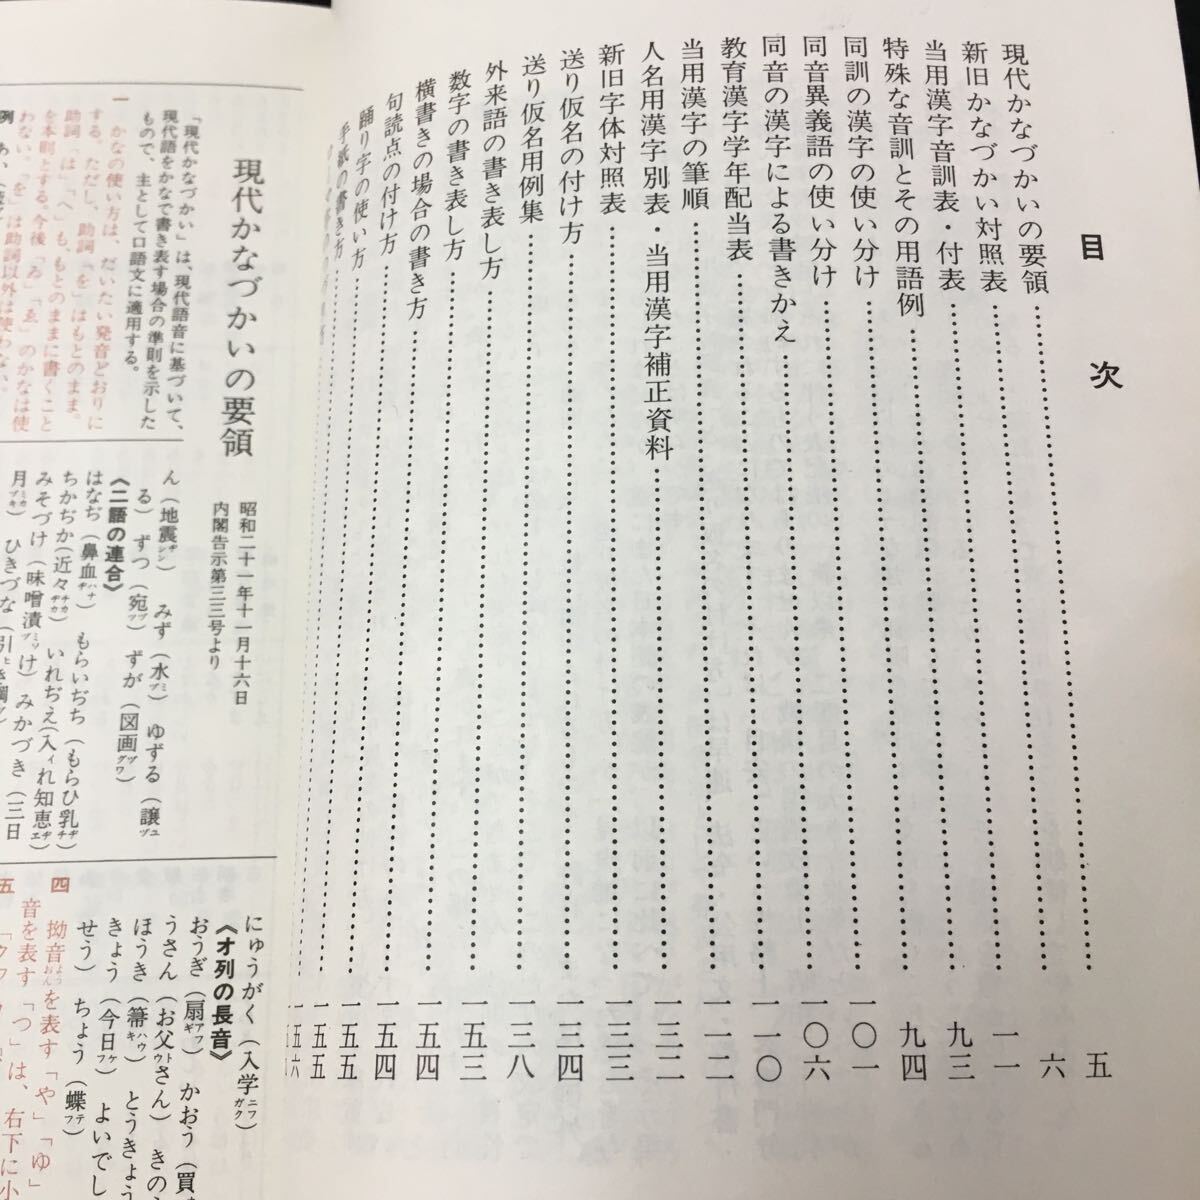 目次
現代かなづかいの要領……五
新旧かなづかい対照表……六
当用漢字音訓表・付表……一一
特殊な音訓とその用語例……九三
同訓の漢字の使い分け……九四
同音異義語の使い分け……一〇一
同音の漢字による書きかえ……一〇六
教育漢字学年配当表……一一〇
当用漢字の筆順……一一二
人名用漢字別表・当用漢字補正資料……一三二
新旧字体対照表……一三三
送り仮名の付け方……一三四
送り仮名用例集……一三八
外来語の書き表し方……一五三
数字の書き表し方……一五四
横書きの場合の書き方……一五四
句読点の付け方……一五五
踊り字の使い方……一五五
手紙の書き方……一五六
現代かなづかいの要領
昭和二十一年十一月十六日
内閣告示第三三号より
「現代かなづかい」は、現代語音に基づいて、
現代語をかなで書き表す場合の準則を示した
もので、主として口語文に適用する。
一 かなの使い方は、だいたい発音どおりに
する。ただし、助詞「を」はもとのまま。
助詞「は」「へ」も、もとのままに書くこと
を本則とする。今後「ゐ」「ゑ」のかなは使
わない。「を」は助詞以外は使わない。
例
ん(地震ヂシン) みず(水ミヅ) ゆずる(譲ユヅ
る) ずつ(宛ヅツ) ずが(図画ヅグワ)
《二語の連合》
はなぢ(鼻血ハナヂ) もらいぢち(もらひ乳ヂチ)
ちかぢか(近々チカヂカ) いれぢえ(入イれ知恵ヂヱ)
みそづけ(味噌漬ミソヅけ) みかづき(三日
月ミカヅキ) ひきづな(引ヒき綱ヅナ)
にゅうがく(入学ニフガク)
《オ列の長音》
おうぎ(扇アフギ) かおう(買
うさん(お父トウさん) きのう
ほうき(箒ハウキ) とうきょう
きょう(今日ケフ) よいでし
せう) ちょう(蝶テフ)
四 拗音ようおんを表す「や」「ゆ」
音を表す「つ」は、右下に小
五